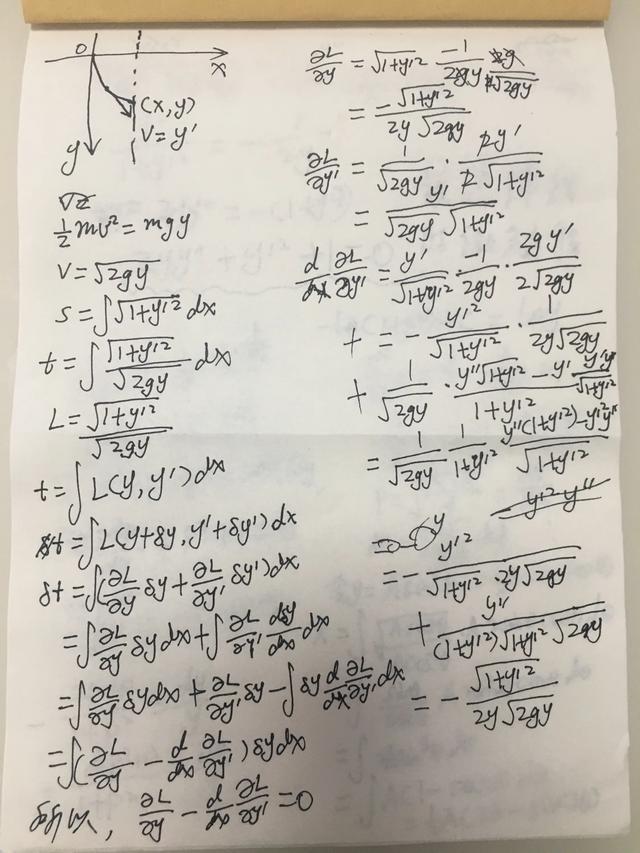 0
x
(x, y)
V = y'
y
√2
½mv² = mgy
V = √(2gy)
S = ∫√(1+y'²) dx
t = ∫ √(1+y'²)/√(2gy) dx
L = √(1+y'²)/√(2gy)
t = ∫L(y, y')dx
δt = ∫L(y+δy, y'+δy')dx
δt = ∫(∂L/∂y δy + ∂L/∂y' δy')dx
= ∫∂L/∂y δy dx + ∫∂L/∂y' dδy/dx dx
= ∫∂L/∂y δy dx + ∂L/∂y' δy - ∫δy d/dx ∂L/∂y' dx
= ∫(∂L/∂y - d/dx ∂L/∂y')δy dx
所以, ∂L/∂y - d/dx ∂L/∂y' = 0
∂L/∂y = √(1+y'²) · -1/2gy · 2g/2√(2gy)
= -√(1+y'²)/2y√(2gy)
∂L/∂y' = 1/√(2gy) · 2y'/2√(1+y'²)
= y'/√(2gy)√(1+y'²)
d/dx ∂L/∂y' = y'/√(1+y'²) · -1/2gy · 2gy'/2√(2gy)
+ = - y'²/√(1+y'²) · 1/2y√(2gy)
+ 1/√(2gy) · (y''√(1+y'²) - y' y'y''/√(1+y'²))/(1+y'²)
= 1/√(2gy) · 1/(1+y'²) · (y''(1+y'²) - y'²y'')/√(1+y'²)
y'²y''
y
= - y'²/√(1+y'²)·2y√(2gy)
+ y''/(1+y'²)√(1+y'²)√(2gy)
= - √(1+y'²)/2y√(2gy)